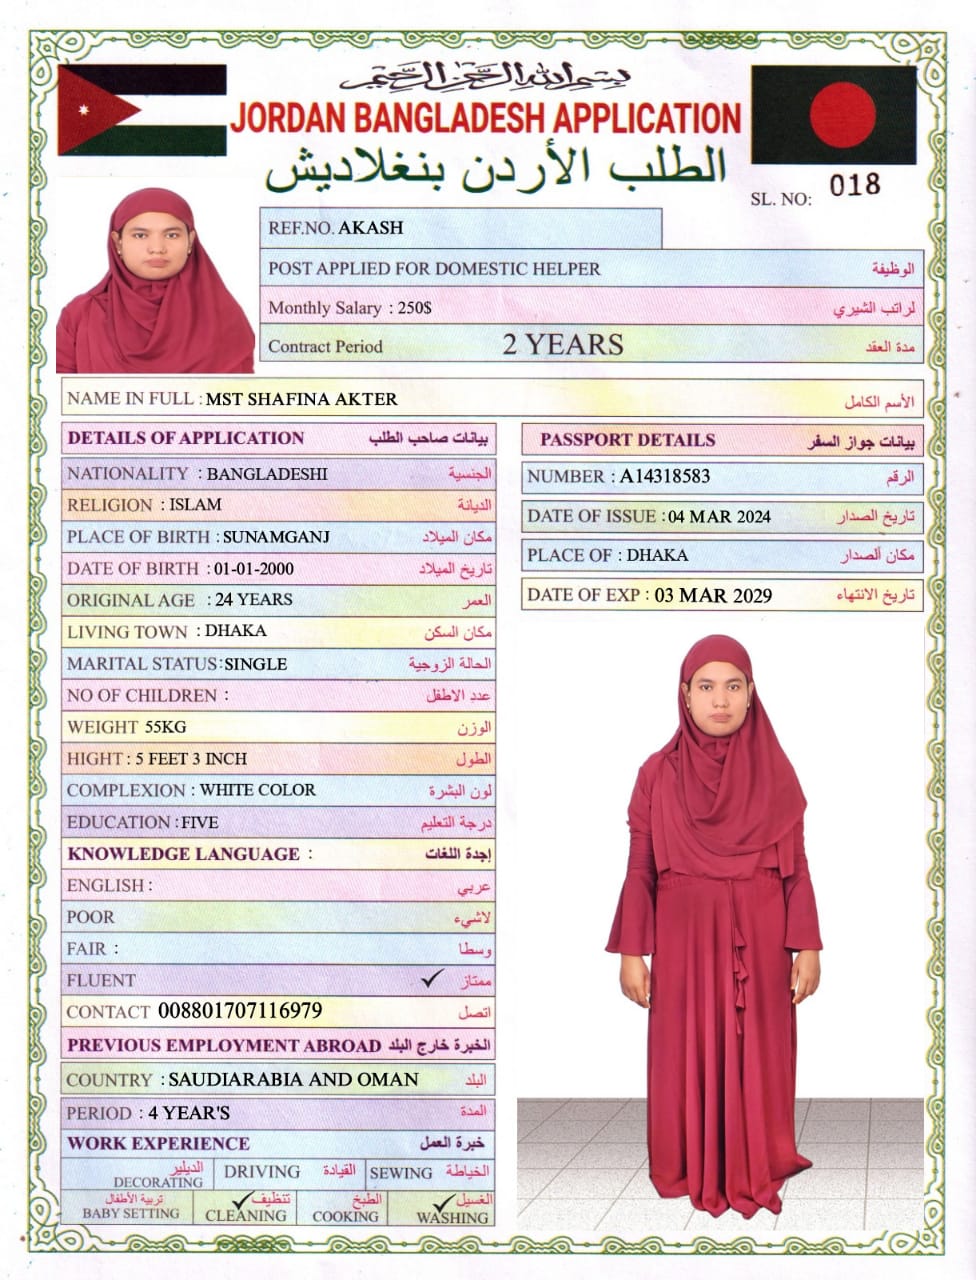 بسم الله الرحمن الرحيم
JORDAN BANGLADESH APPLICATION
الطلب الأردن بنغلاديش
SL. NO: 018
REF.NO. AKASH
POST APPLIED FOR DOMESTIC HELPER الوظيفة
Monthly Salary : 250$ لراتب الشيري
Contract Period 2 YEARS مدة العقد
NAME IN FULL : MST SHAFINA AKTER الأسم الكامل
DETAILS OF APPLICATION بيانات صاحب الطلب
NATIONALITY : BANGLADESHI الجنسية
RELIGION : ISLAM الديانة
PLACE OF BIRTH : SUNAMGANJ مكان الميلاد
DATE OF BIRTH : 01-01-2000 تاريخ الميلاد
ORIGINAL AGE : 24 YEARS العمر
LIVING TOWN : DHAKA مكان السكن
MARITAL STATUS:SINGLE الحالة الزوجية
NO OF CHILDREN : عدد الاطفل
WEIGHT 55KG الوزن
HIGHT : 5 FEET 3 INCH الطول
COMPLEXION : WHITE COLOR لون البشرة
EDUCATION : FIVE درجة التعليم
KNOWLEDGE LANGUAGE : إجدة اللغات
ENGLISH : عربي
POOR لاشيء
FAIR : وسطا
FLUENT ✓ ممتاز
CONTACT 008801707116979 اتصل
PREVIOUS EMPLOYMENT ABROAD الخبرة خارج البلد
COUNTRY : SAUDIARABIA AND OMAN البلد
PERIOD : 4 YEAR'S المدة
WORK EXPERIENCE خبرة العمل
الديلير DECORATING DRIVING القيادة SEWING الخياطة
تربية الأطفال ✓ تنظيف الطبخ ✓ الغسيل
BABY SETTING CLEANING COOKING WASHING
PASSPORT DETAILS بيانات جواز السفر
NUMBER : A14318583 الرقم
DATE OF ISSUE : 04 MAR 2024 تاريخ الصدار
PLACE OF : DHAKA مكان ألصدار
DATE OF EXP : 03 MAR 2029 تاريخ الانتهاء